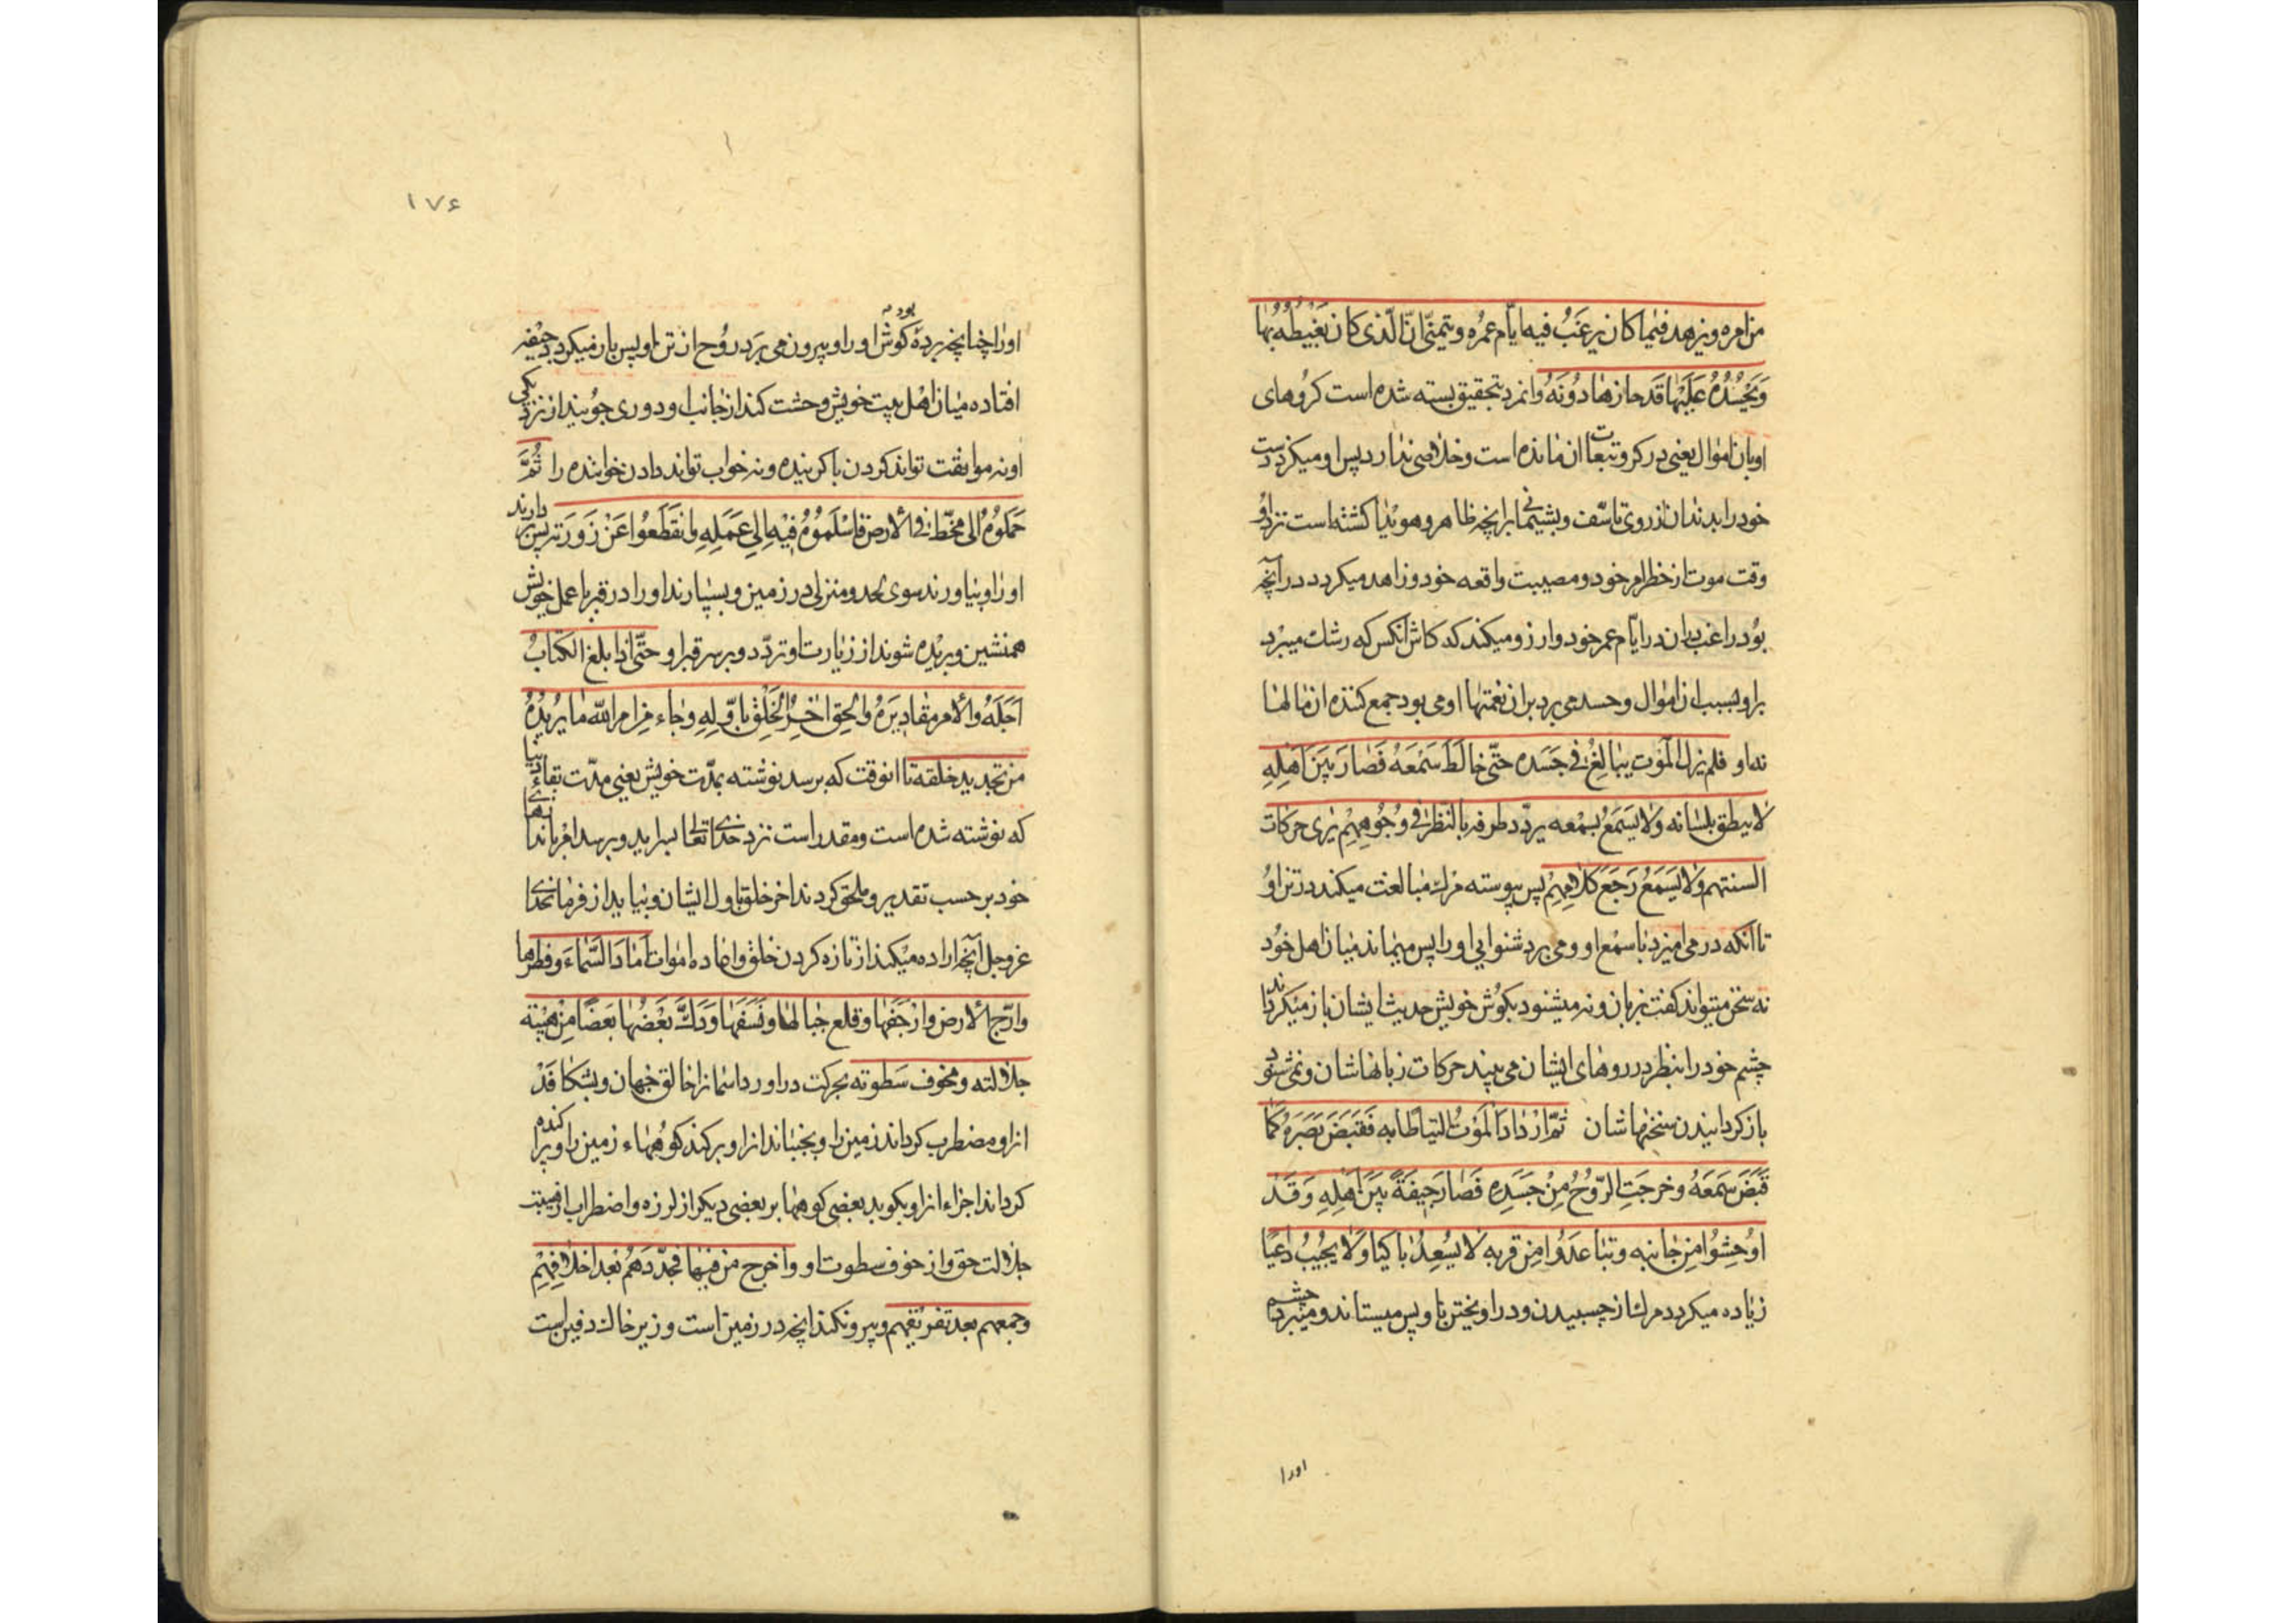 من امره ويزهد فيما كان يرغب فيه ايّام عمره ويتمنّى انّ الّذى كان يغبطه بها
ويحسده عليها قد حازها دونه وانمرد بتحقيق بسته شده است كروهاى
او بان اموال يعنى در كرو تبعات ان مانده است وخلاصى ندارد پس او ميكزد دست
خود را بدندان از روى تاسّف وپشيمانى برانچه ظاهر وهويدا كشته است نزد او
وقت موت از خطر امر خود ومصيبت واقعه خود وزاهد ميكردد در آنچه
بود راغب بدان در ايّام عمر خود وارزو ميكند كه كاش آنكس كه رشك ميبرد
براو بسبب ان اموال وحسد مى برد بران نعمتها او مى بود جمع كننده ان مالها
نه او فلم يزل الموت يبالغ فى جسده حتّى خالط سمعه فصار بين اهله
لا ينطق بلسانه ولا يسمع بسمعه يردّد طرفه بالنّظر فى وجوههم يرى حركات
السنتهم ولا يسمع رجع كلامهم پس پيوسته مرك مبالغت ميكند در تن او
تا آنكه در مى اميزد با سمع او ومى برد شنوايى او را پس ميماند ميان اهل خود
نه سخن ميتواند كفت بزبان ونه ميشنود بكوش خويش حديث ايشان باز ميكرداند
چشم خود را بنظر در روهاى ايشان مى بيند حركات زبانهاشان ونمى شنود
باز كردانيدن سخنهاشان ثمّ ازداد الموت التياطا به فقبض بصره كما
قبض سمعه وخرجت الرّوح من جسده فصار جيفة بين اهله وقد
اوحشوا من جانبه وتباعدوا من قربه لا يسعد باكيا ولا يجيب داعيا
زياده ميكردد مرك از چسبيدن ودر اويختن با او پس ميستاند وميبرد چشم
اورا
١٧۶
اورا چنانچه برده بود كوش اورا وبيرون مى برد روح از تن او پس باز ميكردد جيفه
افتاده ميان اهل بيت خويش وحشت كنند از جانب او ودورى جويند از نزديكى
او نه موافقت تواند كردن با كرينده ونه جواب تواند دادن خواننده را ثمّ
حملوه الى مخطّ فى الارض فاسلموه فيه الى عمله وانقطعوا عن زورته پس بردارند
اورا وبياورند سوى لحد ومنزلى در زمين وبسپارند اورا در قبر با عمل خويش
همنشين وبريده شوند از زيارت او وتردّد وبر سر قبر او حتّى اذا بلغ الكتاب
اجله والامر مقاديره والحق اخر الخلق باوّله وجاء من امر الله ما يريده
من تجديد خلقه تا انوقت كه برسد نوشته بمدّت خويش يعنى مدّت بقاى دنيا
كه نوشته شده است ومقدر است نزد خداى تعالى بسر ايد وبرسد امر باندازهاى
خود بر حسب تقدير وملحق كردند اخر خلق باول ايشان وبيايد از فرمان خداى
عزوجل آنچه اراده ميكند از تازه كردن خلق واعاده اموات اماد السّماء وفطرها
وارّج الارض وارجفها وقلع جبالها ونسفها ودكّ بعضها بعضا من هيبة
جلالته ومخوف سطوته بحركت در اورد اسمانرا خالق جهان وبشكافد
انرا ومضطرب كرداند زمين را وبجنباند انرا وبركند كوههاء زمين را وپراكنده
كرداند اجزاء انرا وبكوبد بعضى كوهها بر بعضى ديكر از لرزه واضطراب از هيبت
جلالت حق واز خوف سطوت او واخرج من فيها فجدّدهم بعد اخلاقهم
وجمعهم بعد تفريقهم وبيرون كند انچه در زمين است وزير خاك دفين است